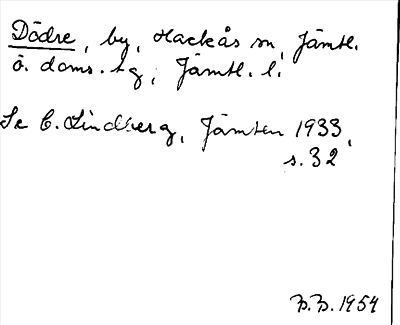 Dödre, by, Hackås sn, Jämtl.
ö. doms. tg, Jämtl. l.
Se C. Lindberg, Jämten 1933,
s. 32
B.B. 1954